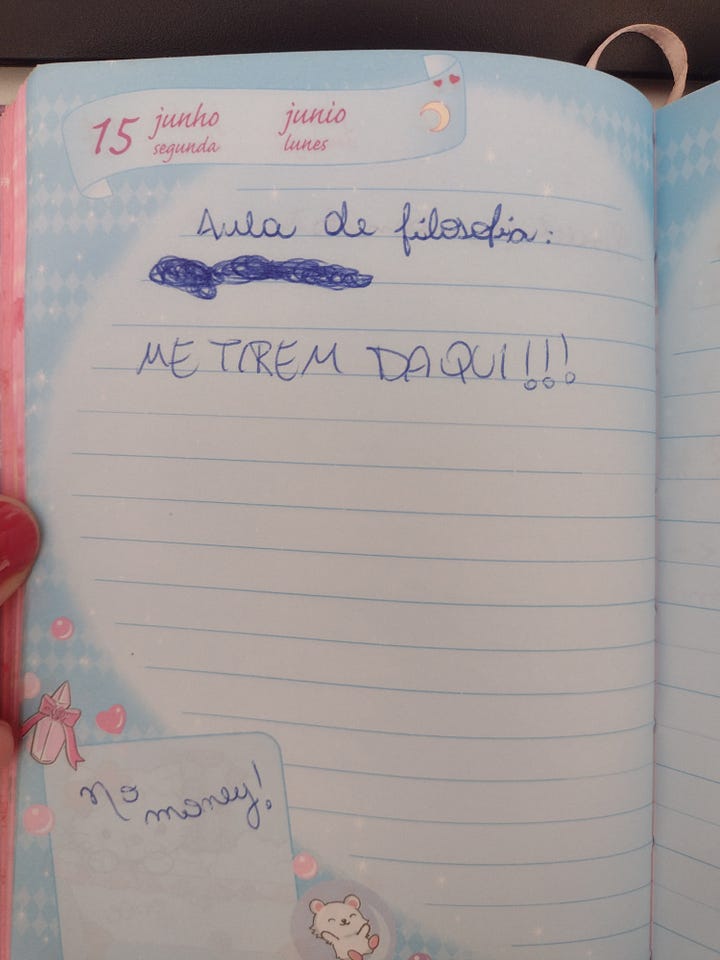 15 junho junio
segunda lunes
Aula de filosofia:
ME TIREM DAQUI!!!
No
money!